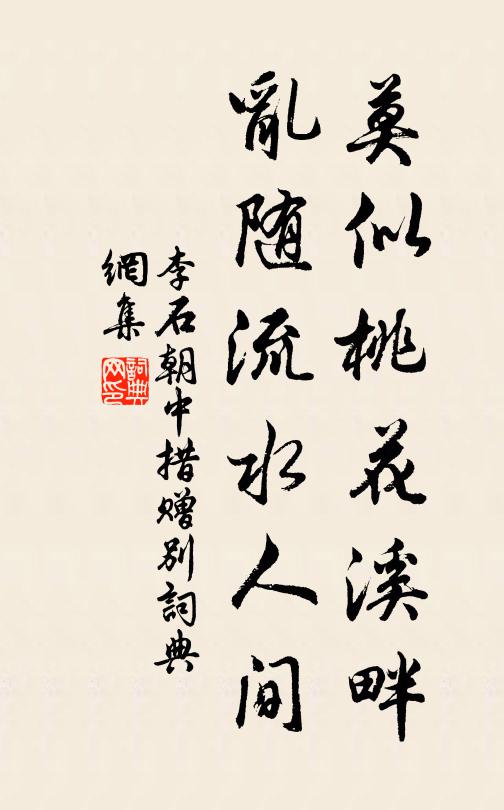 莫似桃花溪畔
亂随流水人间
李石朝中措赠别詞典
網集
詞典
网印